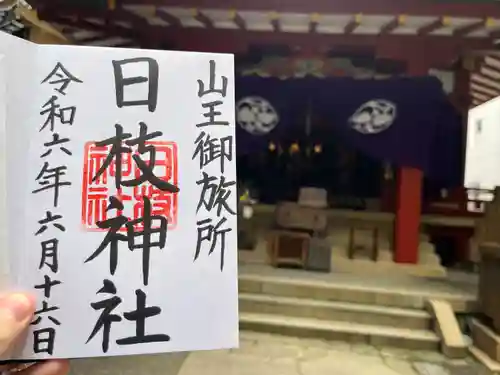 山王御旅所
日枝神社
令和六年六月十六日
日枝神社